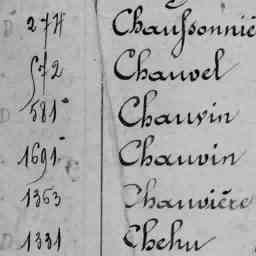 274 Chaussonniè
572 Chauvel
581 Chauvin
1691 Chauvin
1363 Chauvière
1331 Chehu